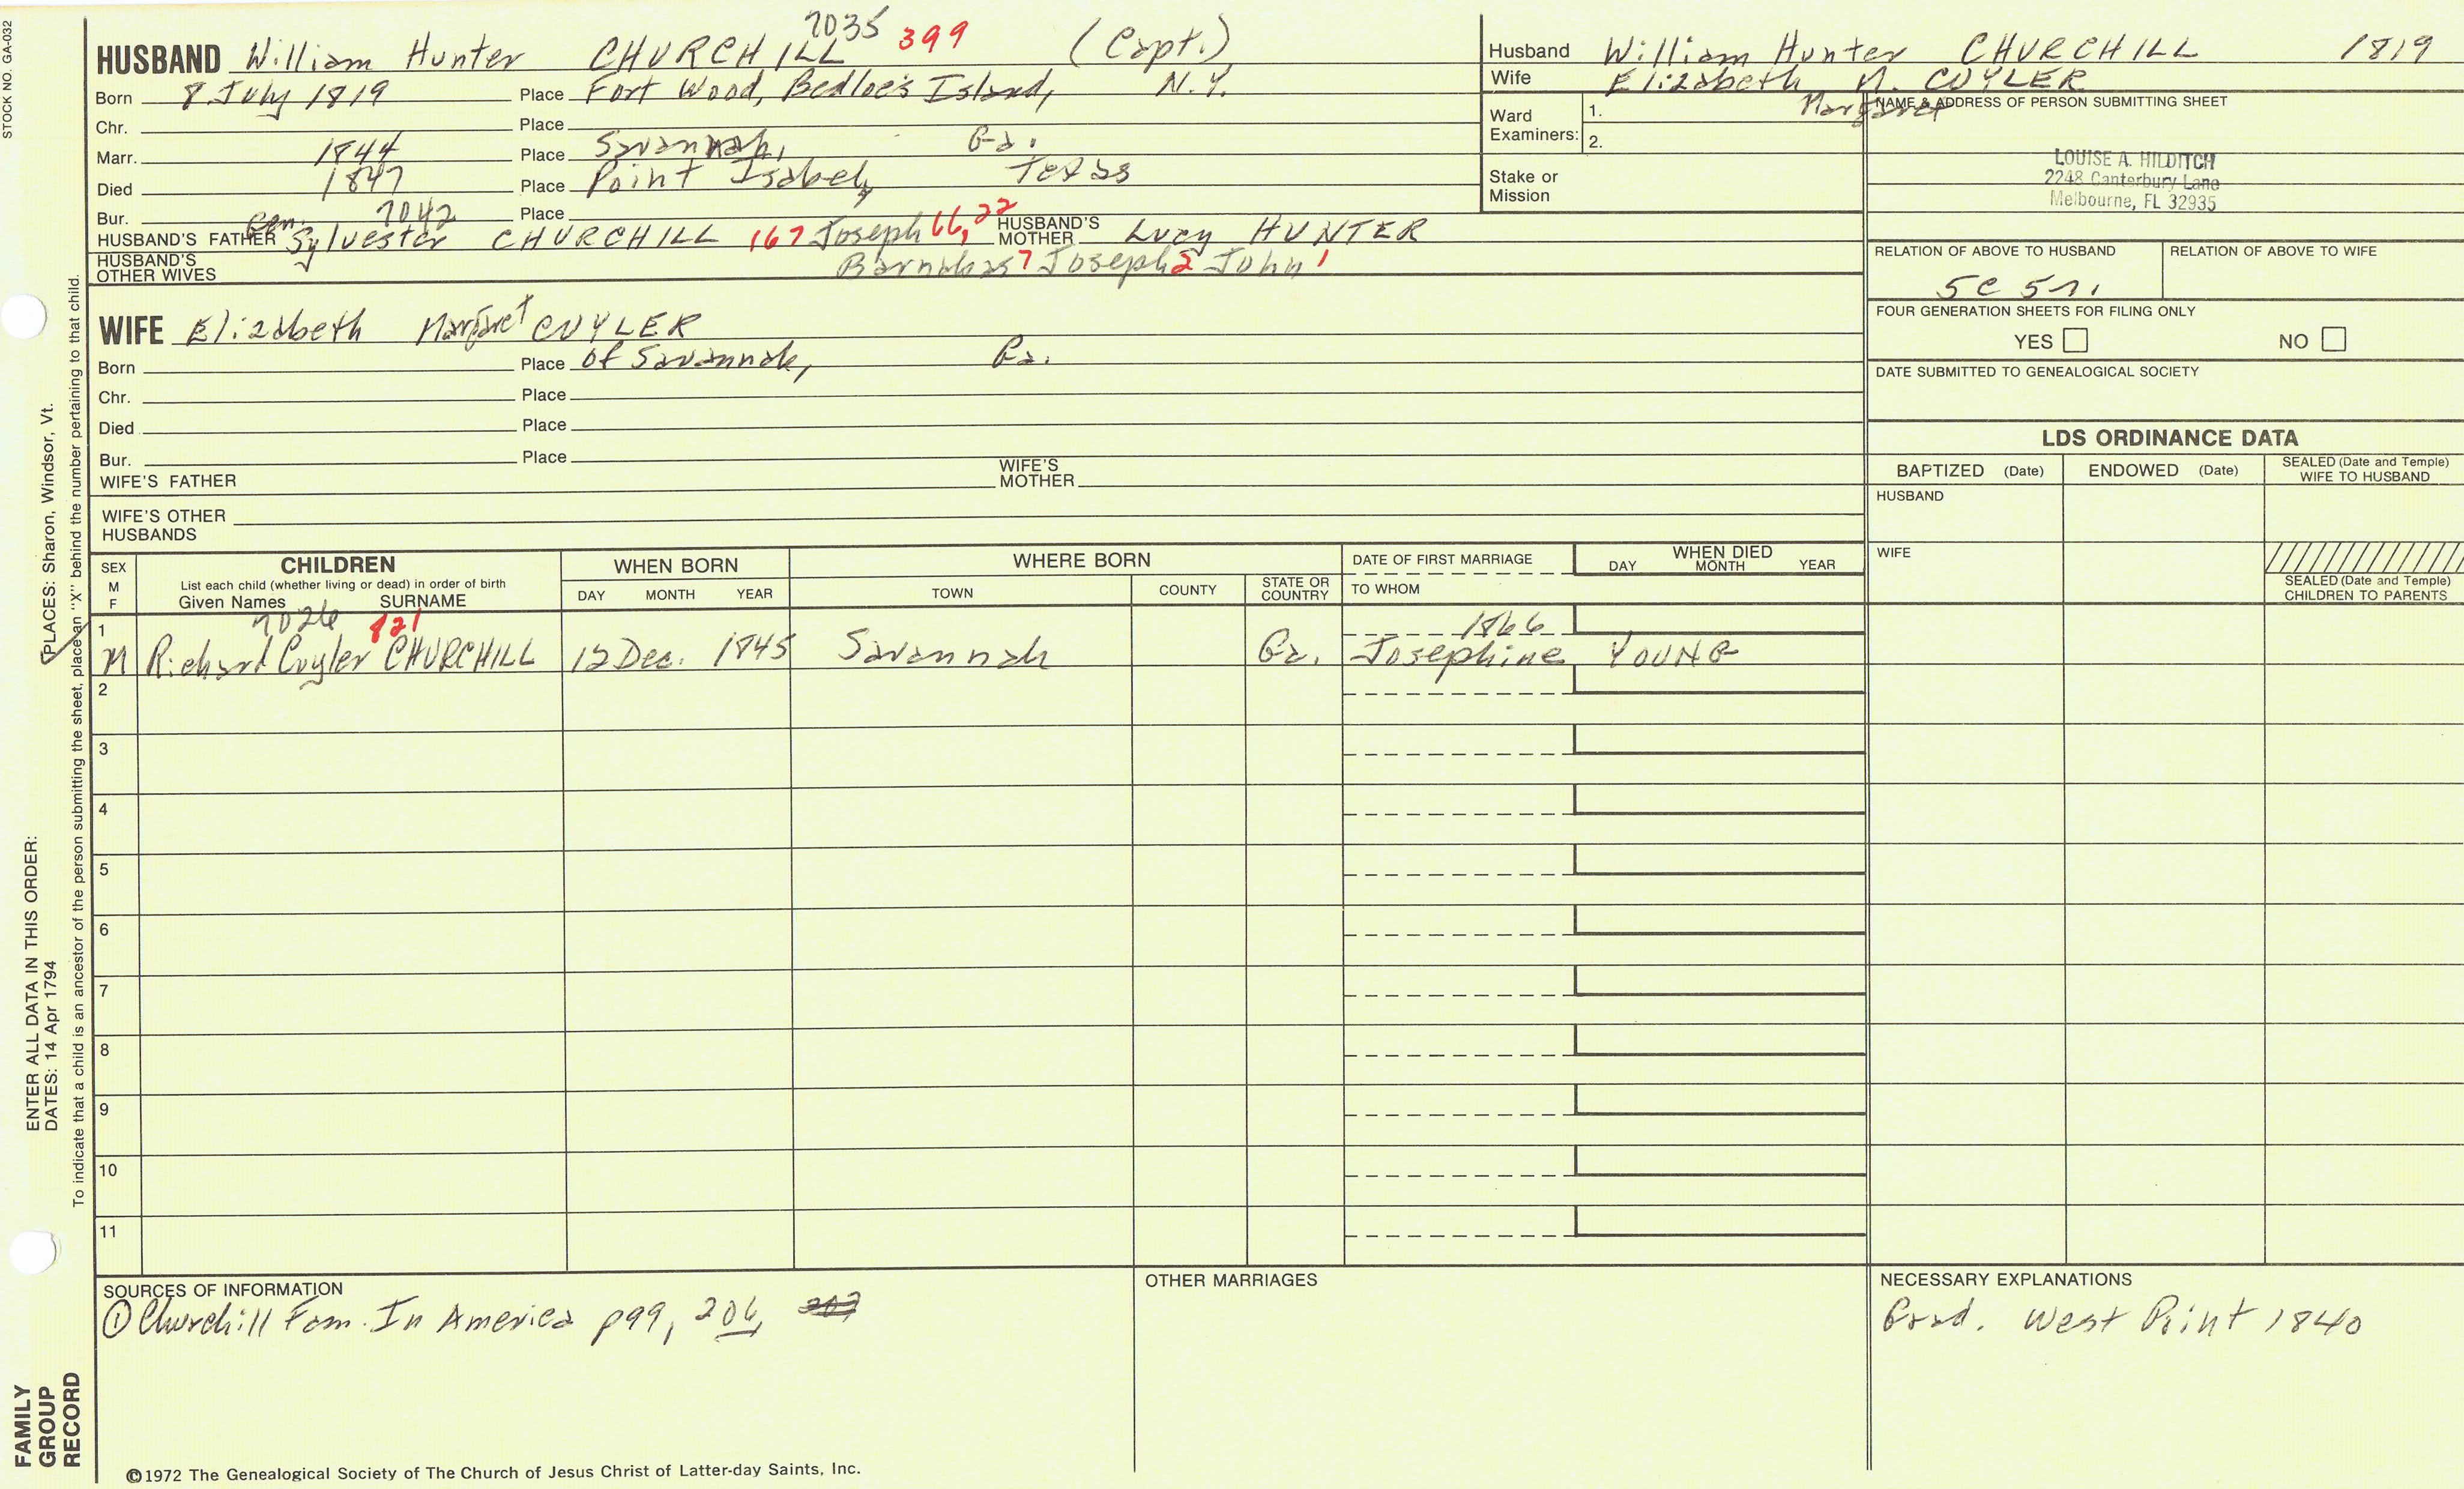 STOCK NO. GA-032
7035 399
HUSBAND William Hunter CHURCHILL (Capt.)
Born 8 July 1819 Place Fort Wood, Bedloe's Island, N.Y.
Chr. Place
Marr. 1844 Place Savannah, Ga.
Died 1847 Place Point Isabel, Texas
Bur. Place
7042
HUSBAND'S FATHER Gen. Sylvester CHURCHILL 167 Joseph 66, 22 HUSBAND'S MOTHER Lucy HUNTER
HUSBAND'S OTHER WIVES
Barnabas 7 Joseph 2 John 1
WIFE Elizabeth Margaret CUYLER
Born Place of Savannah, Ga.
Chr. Place
Died Place
Bur. Place
WIFE'S FATHER WIFE'S MOTHER
WIFE'S OTHER HUSBANDS
Husband William Hunter CHURCHILL 1819
Wife Elizabeth M. CUYLER
Margaret
Ward Examiners: 1.
2.
Stake or Mission
NAME & ADDRESS OF PERSON SUBMITTING SHEET
LOUISE A. HILDITCH
2248 Canterbury Lane
Melbourne, FL 32935
RELATION OF ABOVE TO HUSBAND RELATION OF ABOVE TO WIFE
5C 5r.
FOUR GENERATION SHEETS FOR FILING ONLY
YES NO
DATE SUBMITTED TO GENEALOGICAL SOCIETY
LDS ORDINANCE DATA
BAPTIZED (Date) ENDOWED (Date) SEALED (Date and Temple) WIFE TO HUSBAND
HUSBAND
WIFE
SEALED (Date and Temple) CHILDREN TO PARENTS
SEX M F
CHILDREN
List each child (whether living or dead) in order of birth
Given Names SURNAME
WHEN BORN
DAY MONTH YEAR
WHERE BORN
TOWN COUNTY STATE OR COUNTRY
DATE OF FIRST MARRIAGE
TO WHOM
WHEN DIED
DAY MONTH YEAR
7026 821
1 1866
M Richard Cuyler CHURCHILL 12 Dec. 1845 Savannah Ga. Josephine YOUNG
2
3
4
5
6
7
8
9
10
11
SOURCES OF INFORMATION
① Churchill Fam. In America p99, 206, 207
OTHER MARRIAGES
NECESSARY EXPLANATIONS
Grad. West Point 1840
©1972 The Genealogical Society of The Church of Jesus Christ of Latter-day Saints, Inc.
FAMILY
GROUP
RECORD
ENTER ALL DATA IN THIS ORDER:
DATES: 14 Apr 1794
PLACES: Sharon, Windsor, Vt.
To indicate that a child is an ancestor of the person submitting the sheet, place an "X" behind the number pertaining to that child.